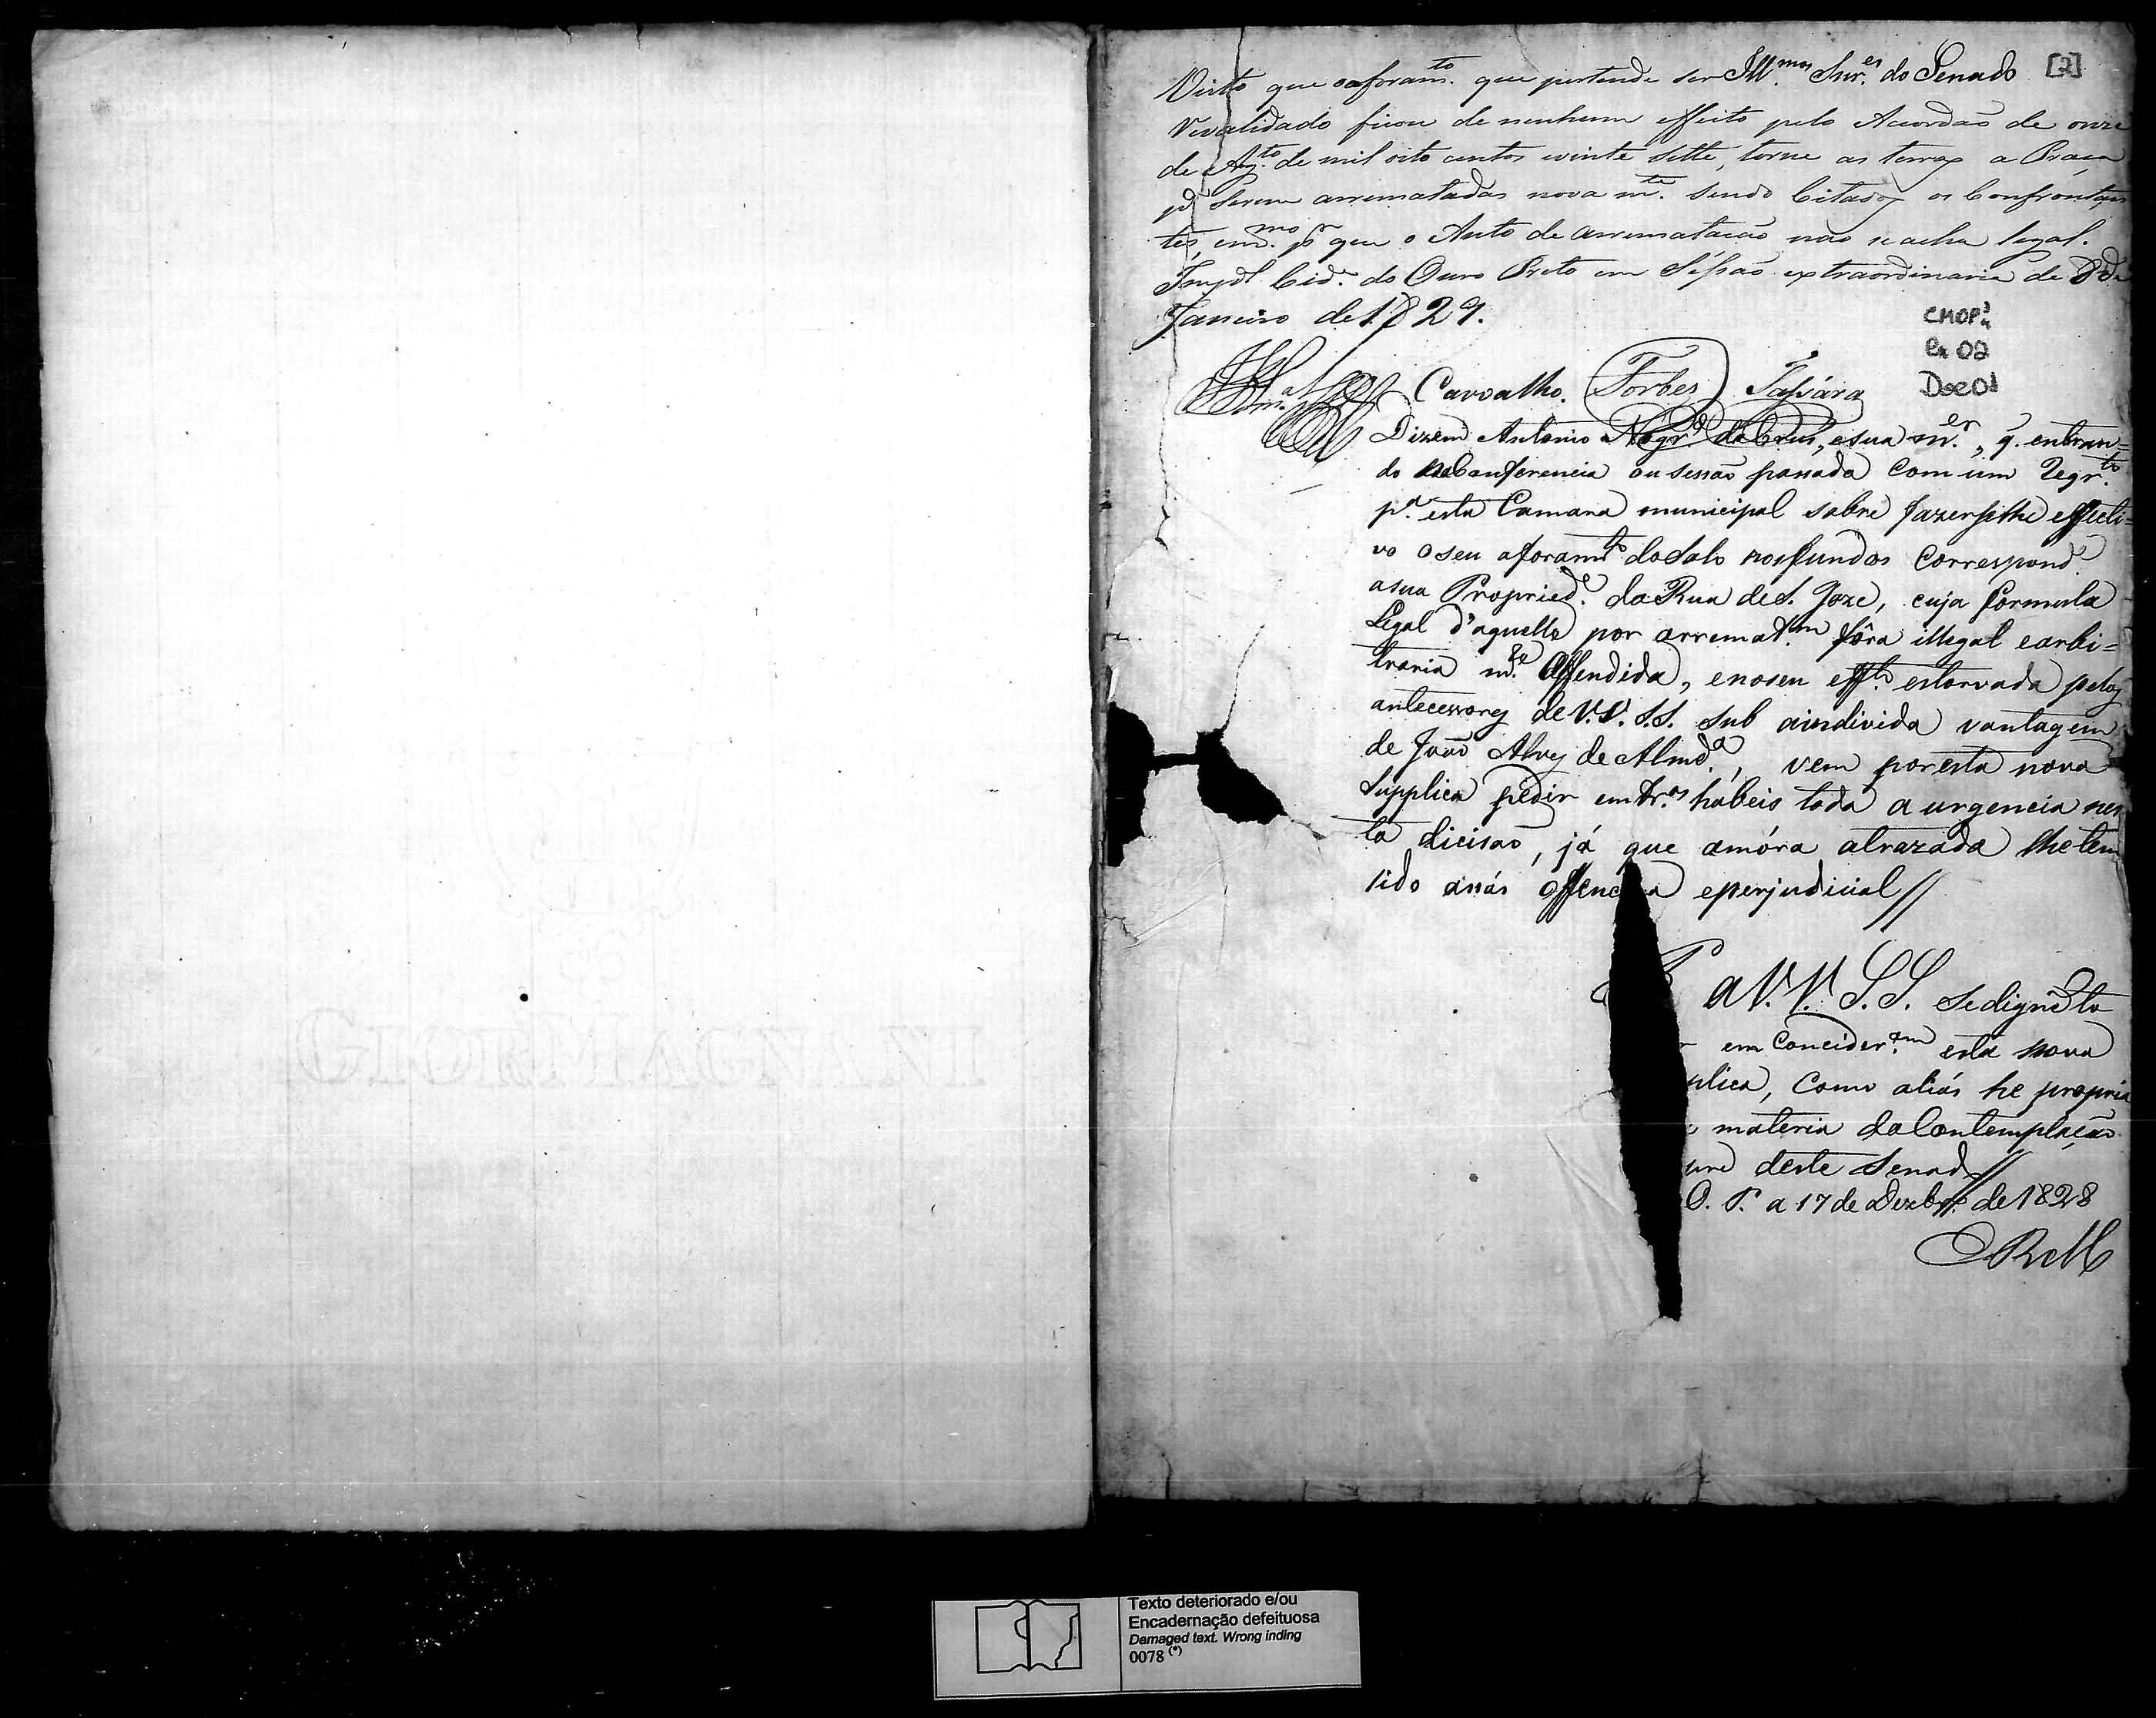 GIORMAGNANI
Visto que o aforam.to que pertende ser Ill.mos Snr.es do Senado [2]
revalidado ficou de nenhum effeito pelo Acordaõ de onze
de Ag.to de mil oito centos vinte sette, torne as terras a Praça
p.a serem arrematadas nova m.te sendo Citados os Confrontan
tes, em.mo p.r que o Auto de arremataçaõ naõ se acha legal.
Imp.l Cid.e do Ouro Preto em Sessaõ extraordinaria de 8 de
Janeiro de 1829.
CMOP
Cx 02
Doc 01
Carvalho. Forbes Passára
Dizem Antonio da Crus, e sua m.er, q. entran=
do na Conferencia ou sessaõ passada Com um Reqr.to
p.a esta Camara municipal sobre fazerselhe effecti=
vo o seu aforam.to do Salo nos fundos Correspond.e
a sua Propried.e da Rua de S. Joze, cuja formula
Legal d'aquelle por arremat.am fôra illegal e arbi=
traria m.te Offendida, e no seu eff.to estorvada pelos
antecessores de V.V. S.S. sub a individa vantagem
de Joaõ Alves de Almd.a, vem por esta nova
Supplica pedir em tr.os habeis toda a urgencia nes
ta dicisaõ, já que a móra atrazada lhe tem
sido assás offenc a e perjudicial //
P a V.V. S.S. Se digne to
r em Concider.am esta nova
plica, Como aliás he propria
materia da Contemplaçaõ
deste Senad //
O. P. a 17 de Dezbr.o de 1828
E R M
Texto deteriorado e/ou
Encadernação defeituosa
Damaged text. Wrong inding
0078 (*)